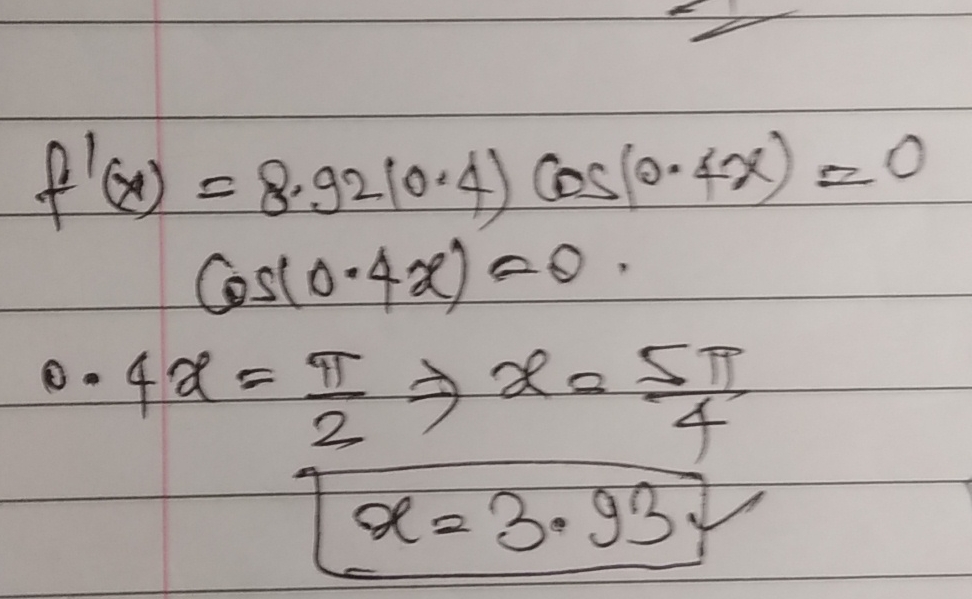 f'(x) = 8.92(0.4) Cos(0.4x) = 0
Cos(0.4x) = 0.
0.4x = π/2 ⇒ x = 5π/4
x = 3.93 ✓